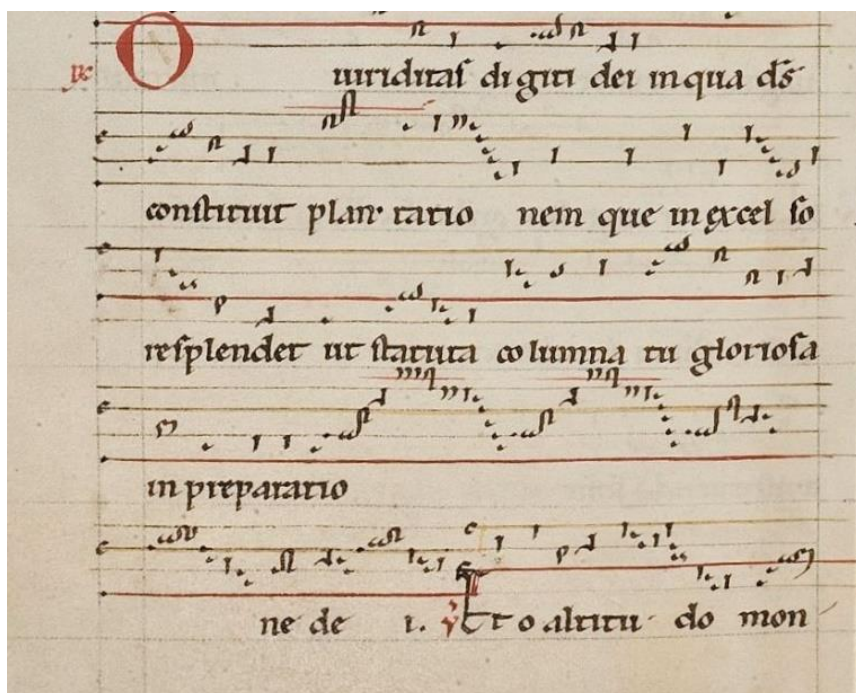 R O uiriditas digiti dei in qua ds
constituit plan tatio nem que in excel so
resplendet ut statuta columna tu gloriosa
in preparatio
ne de i. V Et o altitu do mon